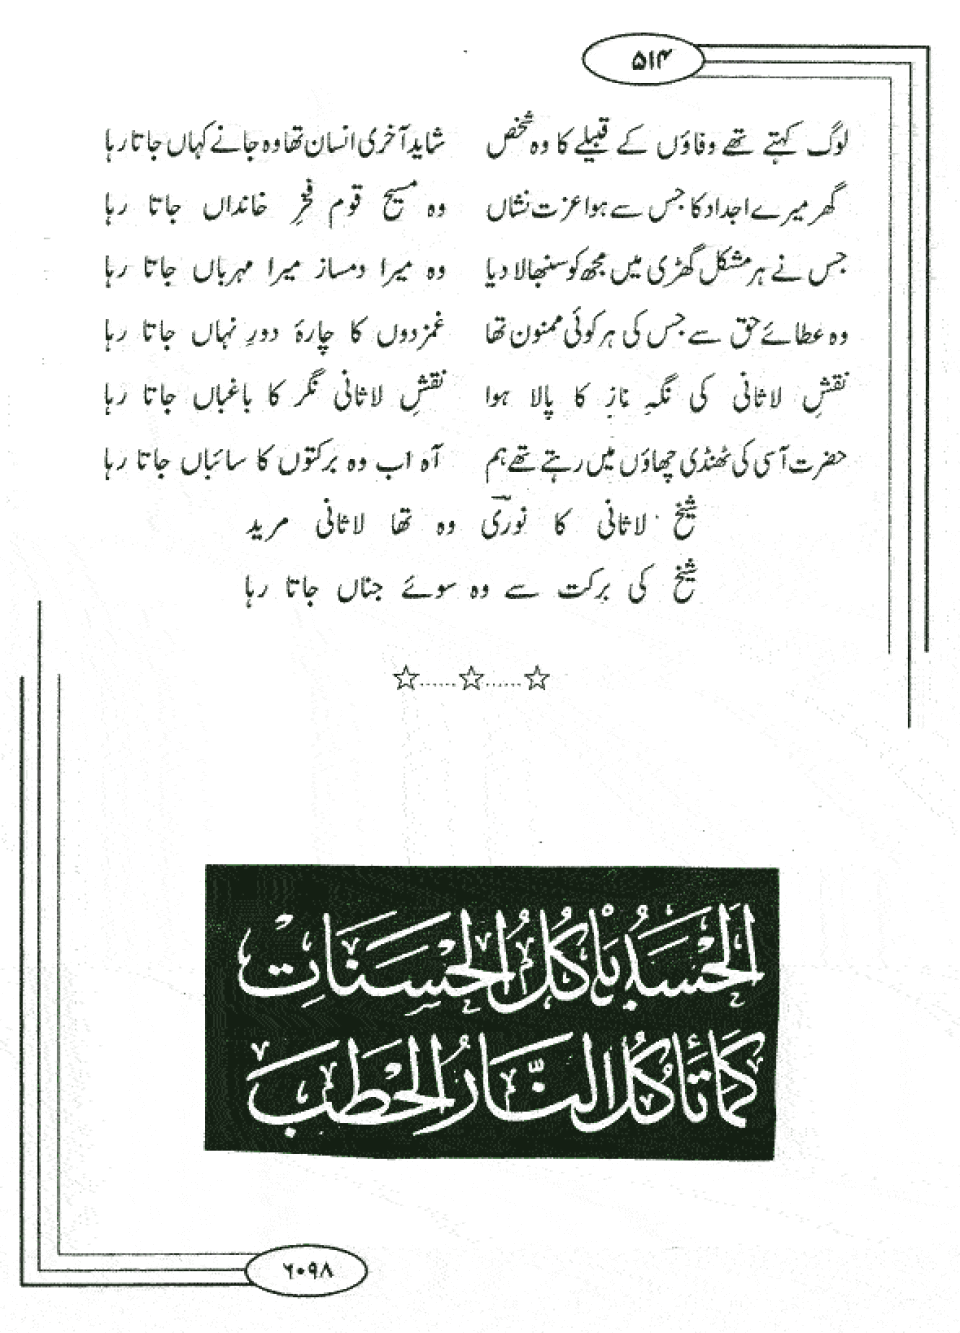 ۵۱۴
لوگ کہتے تھے وفاؤں کے قبیلے کا وہ شخص شاید آخری انسان تھا وہ جانے کہاں جاتا رہا
گھر میرے اجداد کا جس سے ہوا عزت نشاں وہ مسیح قوم فخرِ خانداں جاتا رہا
جس نے ہر مشکل گھڑی میں مجھ کو سنبھالا دیا وہ میرا دمساز میرا مہرباں جاتا رہا
وہ عطائے حق سے جس کی ہر کوئی ممنون تھا غمزدوں کا چارۂ دورِ نہاں جاتا رہا
نقشِ لاثانی کی نگہِ ناز کا پالا ہوا نقشِ لاثانی نگر کا باغباں جاتا رہا
حضرت آسی کی ٹھنڈی چھاؤں میں رہتے تھے ہم آہ اب وہ برکتوں کا سائباں جاتا رہا
شیخ لاثانی کا نوریؔ وہ تھا لاثانی مرید
شیخ کی برکت سے وہ سوئے جناں جاتا رہا
☆......☆......☆
اَلْحَسَدُ يَأْكُلُ الْحَسَنَاتِ
كَمَا تَأْكُلُ النَّارُ الْحَطَبَ
۶۰۹۸